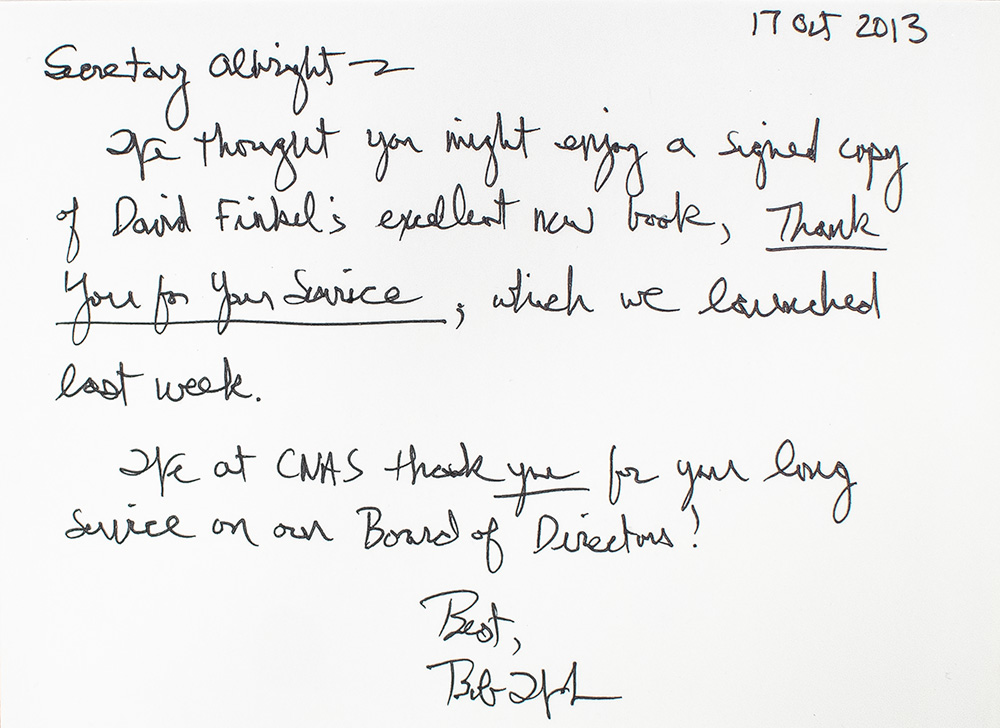 17 Oct 2013
Secretary Albright –
We thought you might enjoy a signed copy
of David Finkel's excellent new book, Thank
You for Your Service, which we launched
last week.
We at CNAS thank you for your long
service on our Board of Directors!
Best,
Bob